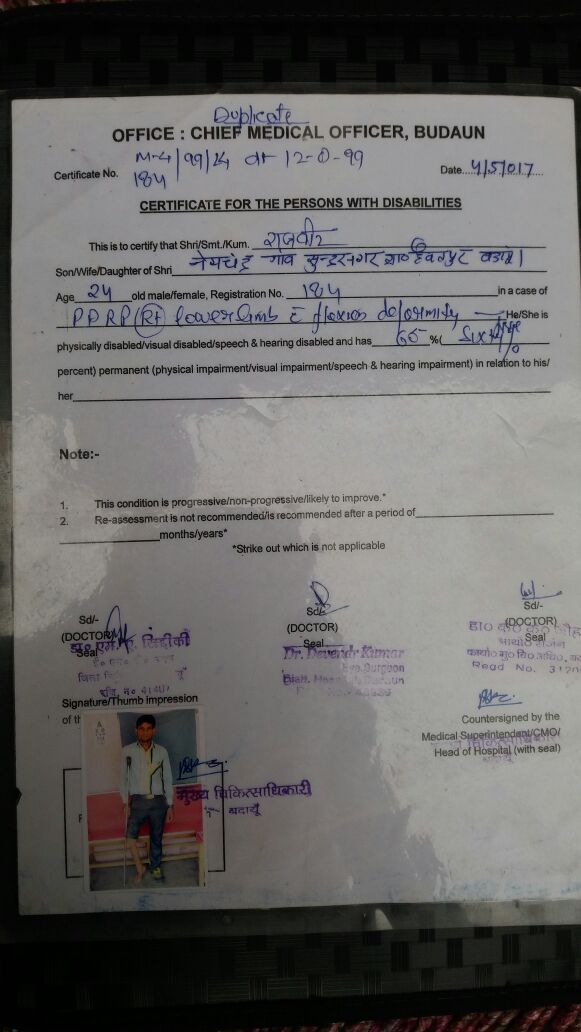 Duplicate
OFFICE : CHIEF MEDICAL OFFICER, BUDAUN
Certificate No. M-4/99/24 dt 12-8-99
184
Date...4/5/017...
CERTIFICATE FOR THE PERSONS WITH DISABILITIES
This is to certify that Shri/Smt./Kum. राजवीर
Son/Wife/Daughter of Shri नेमचंद्र गाँव सुन्दरनगर
Age 24 old male/female, Registration No. 184 in a case of
PPRP (Rt) lower limb flexion deformity He/She is
physically disabled/visual disabled/speech & hearing disabled and has 65 %( Sixty five
percent) permanent (physical impairment/visual impairment/speech & hearing impairment) in relation to his/
her
Note:-
1. This condition is progressive/non-progressive/likely to improve.*
2. Re-assessment is not recommended/is recommended after a period of
months/years*
*Strike out which is not applicable
Sd/- Sd/- Sd/-
(DOCTOR) (DOCTOR) (DOCTOR)
Seal Seal Seal
डा० एम. ए. सिद्दीकी
Dr. Devendr Kumar
Eye Surgeon
Signature/Thumb impression
of th
Countersigned by the
Medical Superintendant/CMO/
Head of Hospital (with seal)
मुख्य चिकित्साधिकारी
बदायूं